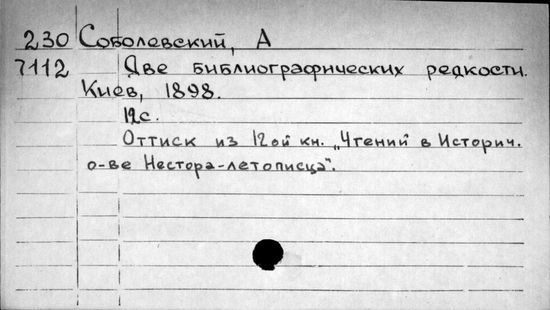 230 Соболевский, А
7112 Две библиографических редкости.
Киев, 1898.
12с.
Оттиск из 12ой кн. „Чтений в Историч.
о-ве Нестора-летописца".